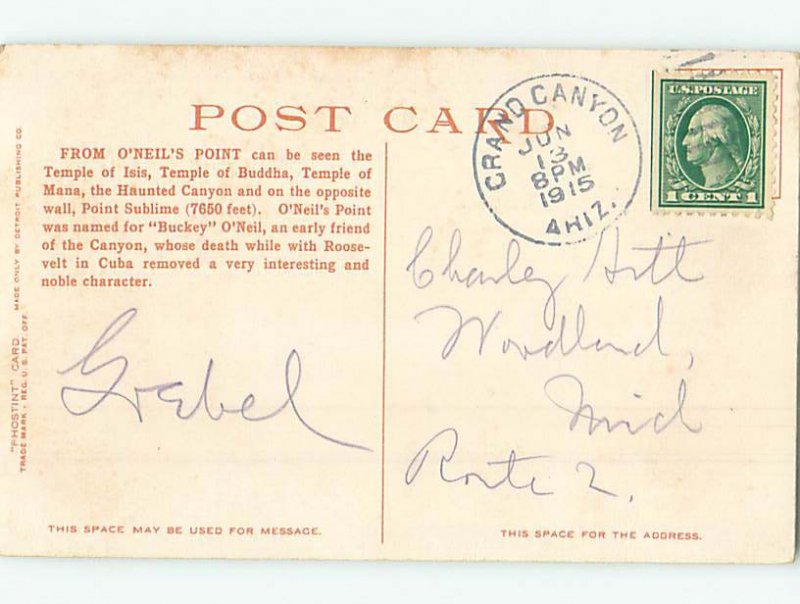 POST CARD
FROM O'NEIL'S POINT can be seen the
Temple of Isis, Temple of Buddha, Temple of
Mana, the Haunted Canyon and on the opposite
wall, Point Sublime (7650 feet). O'Neil's Point
was named for "Buckey" O'Neil, an early friend
of the Canyon, whose death while with Roose-
velt in Cuba removed a very interesting and
noble character.
"PHOSTINT" CARD. MADE ONLY BY DETROIT PUBLISHING CO.
TRADE MARK - REG. U. S. PAT. OFF.
Grebel
THIS SPACE MAY BE USED FOR MESSAGE.
GRAND CANYON
JUN
13
8 PM
1915
ARIZ.
U.S. POSTAGE
1 CENT 1
Charley Hitt
Woodland,
Mich
Route 2.
THIS SPACE FOR THE ADDRESS.